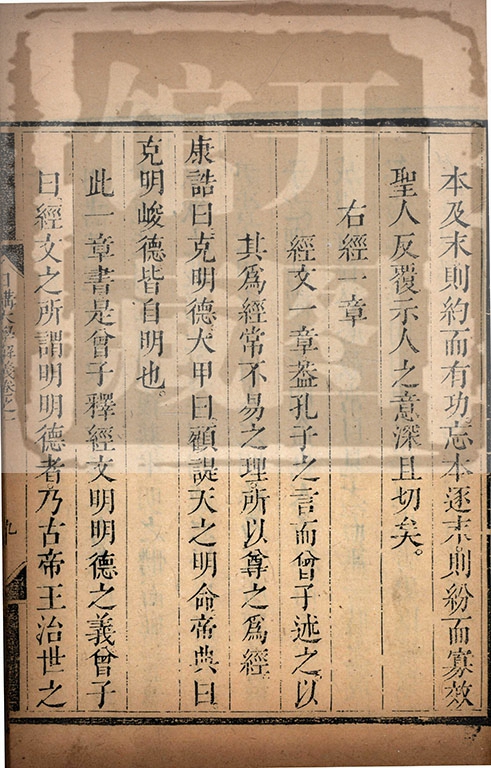 本及末則約而有功忘本逐末則紛而寡效
聖人反覆示人之意深且切矣。
右經一章
經文一章蓋孔子之言而曾子述之以
其爲經常不易之理所以尊之爲經
康誥曰克明德大甲曰顧諟天之明命帝典曰
克明峻德皆自明也。
此一章書是曾子釋經文明明德之義曾子
曰經文之所謂明明德者乃古帝王治世之
日講 卷之一
九